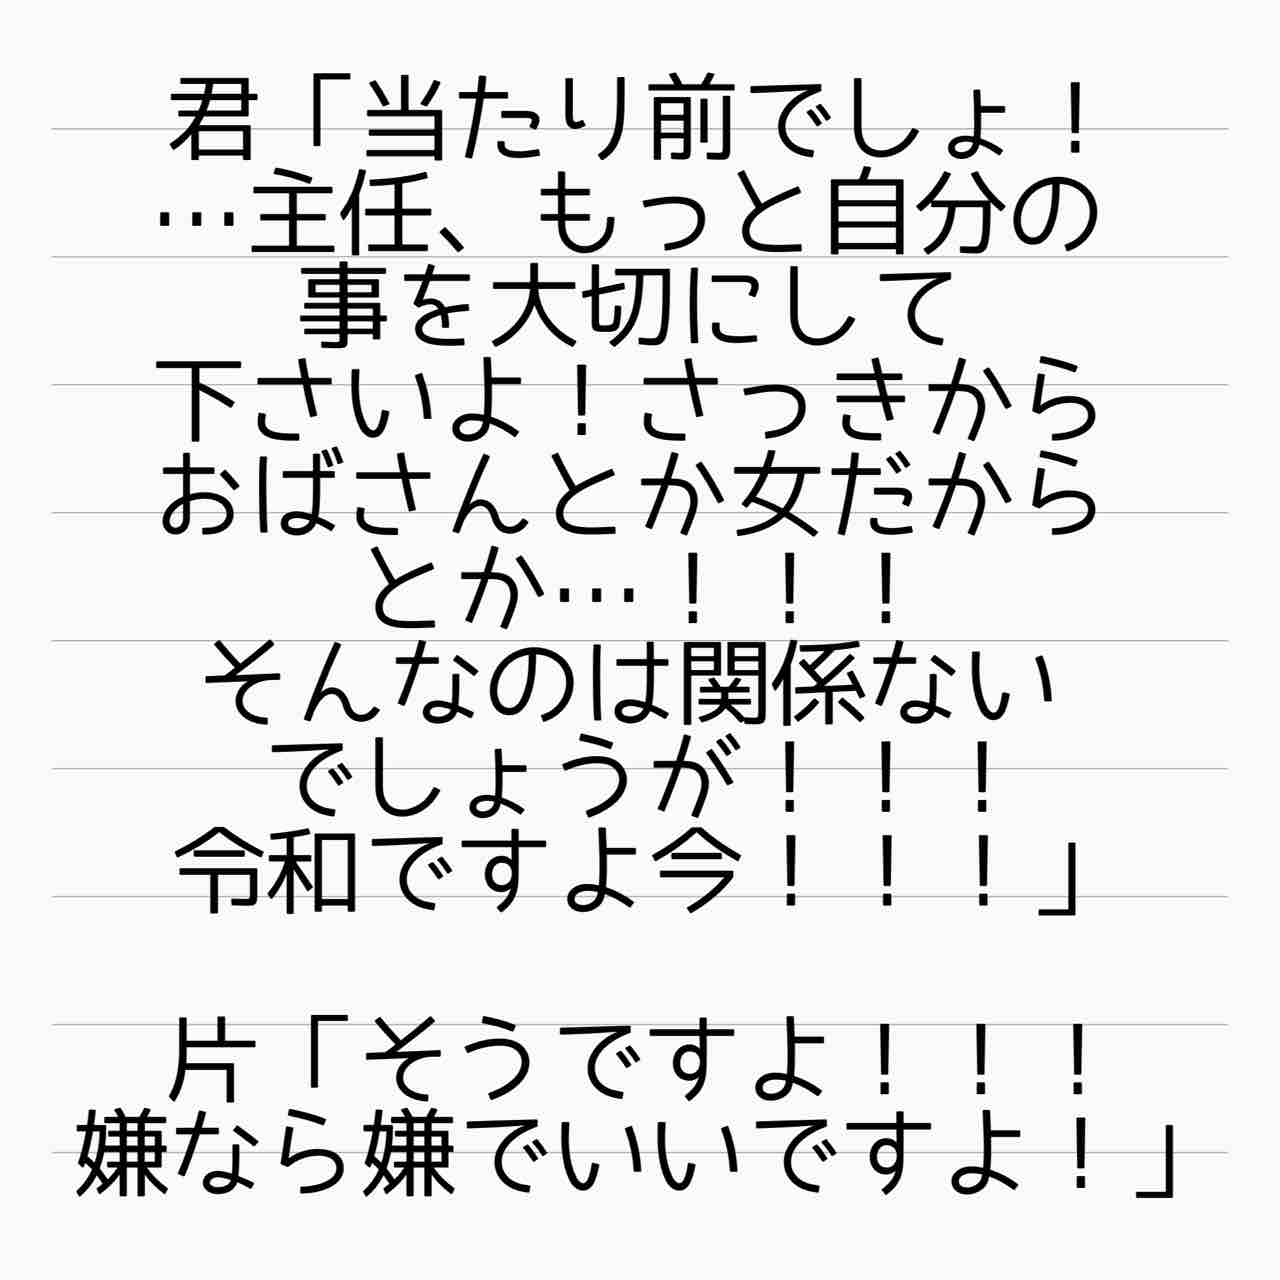 君「当たり前でしょ！
…主任、もっと自分の
事を大切にして
下さいよ！さっきから
おばさんとか女だから
とか…！！！
そんなのは関係ない
でしょうが！！！
令和ですよ今！！！」
片「そうですよ！！！
嫌なら嫌でいいですよ！」